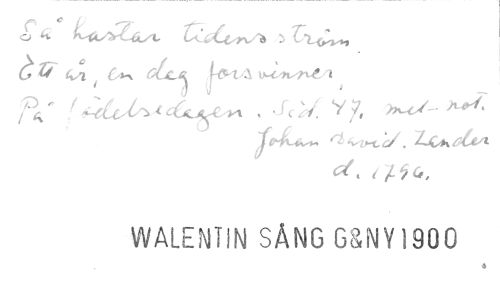 Så hastar tidens ström.
Ett år, en dag forsvinner,
På födelsedagen. Sid. 47. met-not.
Johan David. Zander
d. 1796.
WALENTIN SÅNG G&NY 1900